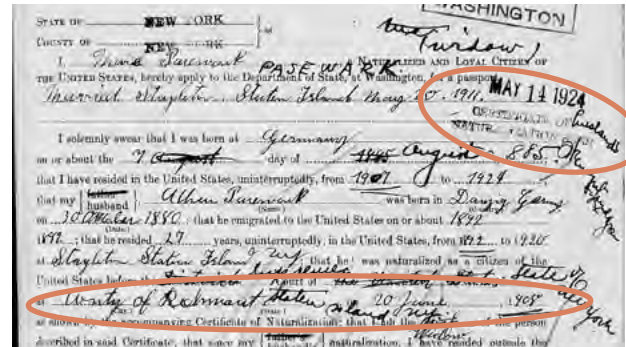 WASHINGTON
STATE OF NEW YORK
(widow)
COUNTY OF NEW YORK
PASEWARK
I, A NATURALIZED AND LOYAL CITIZEN OF
THE UNITED STATES, hereby apply to the Department of State, at Washington, for a passport
MAY 14 1924
married Stapleton Staten Island May 20. 1911.
CERTIFICATE OF husband's
I solemnly swear that I was born at Germany
on or about the 7 August day of 1885 August 1885
that I have resided in the United States, uninterruptedly, from 1907 to 1924
that my father husband was born in Danzig Germ
on 30 October 1880; that he emigrated to the United States on or about 1892
1892; that he resided 27 years, uninterruptedly, in the United States, from 1892 to 1920
at Stapleton Staten Island NY that he was naturalized as a citizen of the
United States before the Court of State of
New York
at County of Staten Island 20 June, 1908
as shown by the accompanying Certificate of Naturalization; that I am the widow person
described in said Certificate, that since my father's husband's naturalization, I have resided outside the